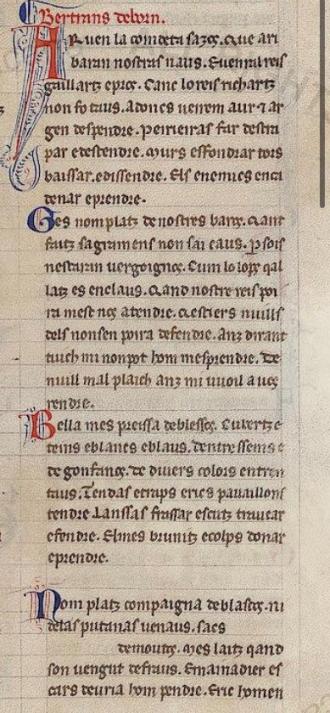 Bertrans deborn.
AR uen la coindeta sazos. Que ari
baran nostras naus. Euenra lreis
gaillartz epros. Canc lo reis richartz
non fo taus. Adoncs veirem aur ⁊ ar
gen despendre. Peirieiras far destra
par edestendre. Murs esfondrar tors
baissar. edissendre. Els enemics enca
denar eprendre.
Ges nom platz de nostres baros. Q̇ant
fautz sagramens non sai caus. Per sois
nestaran uergoignos. Cum lo lops qal
latz es enclaus. Q̇and nostre reis poi
ra mest nos atendre. Q̇estiers nuills
dels non sen poira defendre. Anz dirant
tuich mi non pot hom mesprendre. De
nuill mal plaich anz mi vuoill auos
rendre.
Bella mes preissa deblessos. Cubertz e
teins eblancs eblaus. Dentresseins e
de gonfanos. de diuers colors entren
taus. Tendas etraps erics pauaillons
tendre Lanssas frassar escutz traucar
efendre. Elmes brunitz ecolps donar
eprendre.
Nom platz compaigna deblasclos. ni
delas putanas uenaus. sacs
demoutos. Mes laitz qand
son uengut defraus. Emainadier es
cars deuria hom pendre. Eric homen